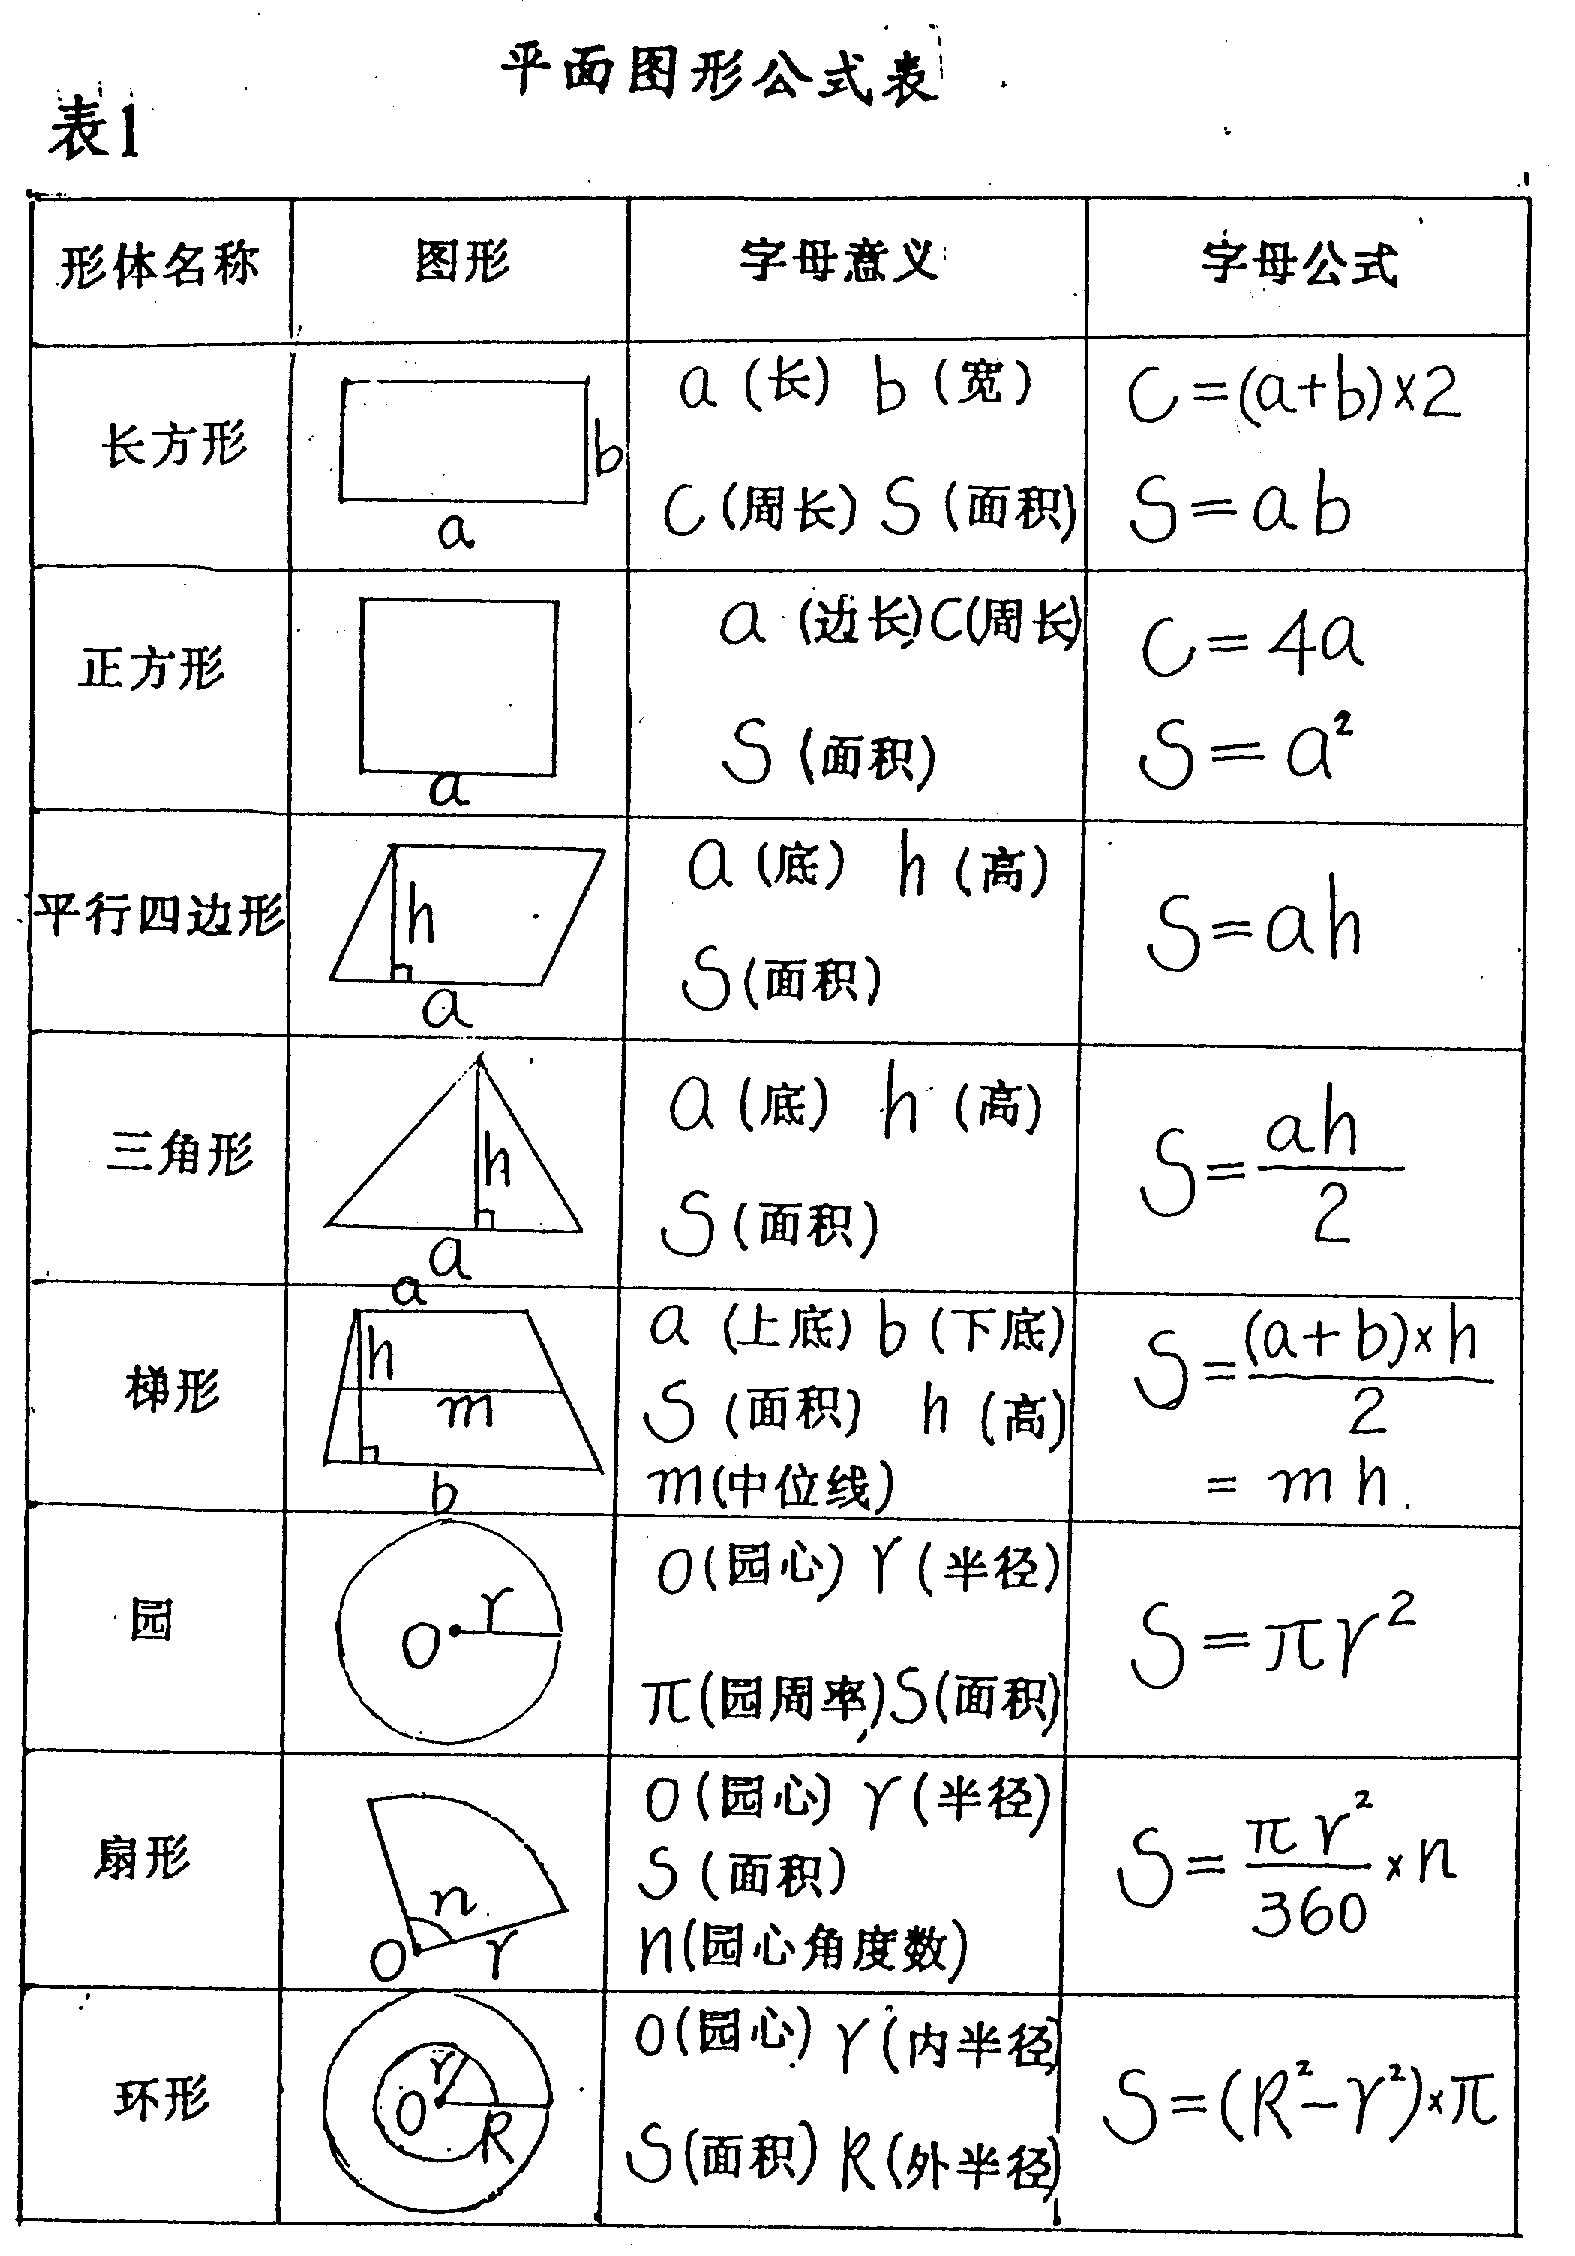 平面图形公式表
表1
形体名称 图形 字母意义 字母公式
长方形
b
a
a (长) b (宽)
C (周长) S (面积)
C=(a+b)×2
S=ab
正方形
a
a (边长) C(周长)
S (面积)
C=4a
S=a²
平行四边形
h
a
a (底) h (高)
S (面积)
S=ah
三角形
h
a
a (底) h (高)
S (面积)
S=ah/2
梯形
a
h
m
b
a (上底) b (下底)
S (面积) h (高)
m(中位线)
S=(a+b)×h/2
=mh
园
O r
O(园心) r (半径)
π(园周率) S(面积)
S=πr²
扇形
n
O r
O(园心) r (半径)
S (面积)
n(园心角度数)
S=πr²/360×n
环形
r
O R
O(园心) r (内半径)
S(面积) R (外半径)
S=(R²-r²)×π